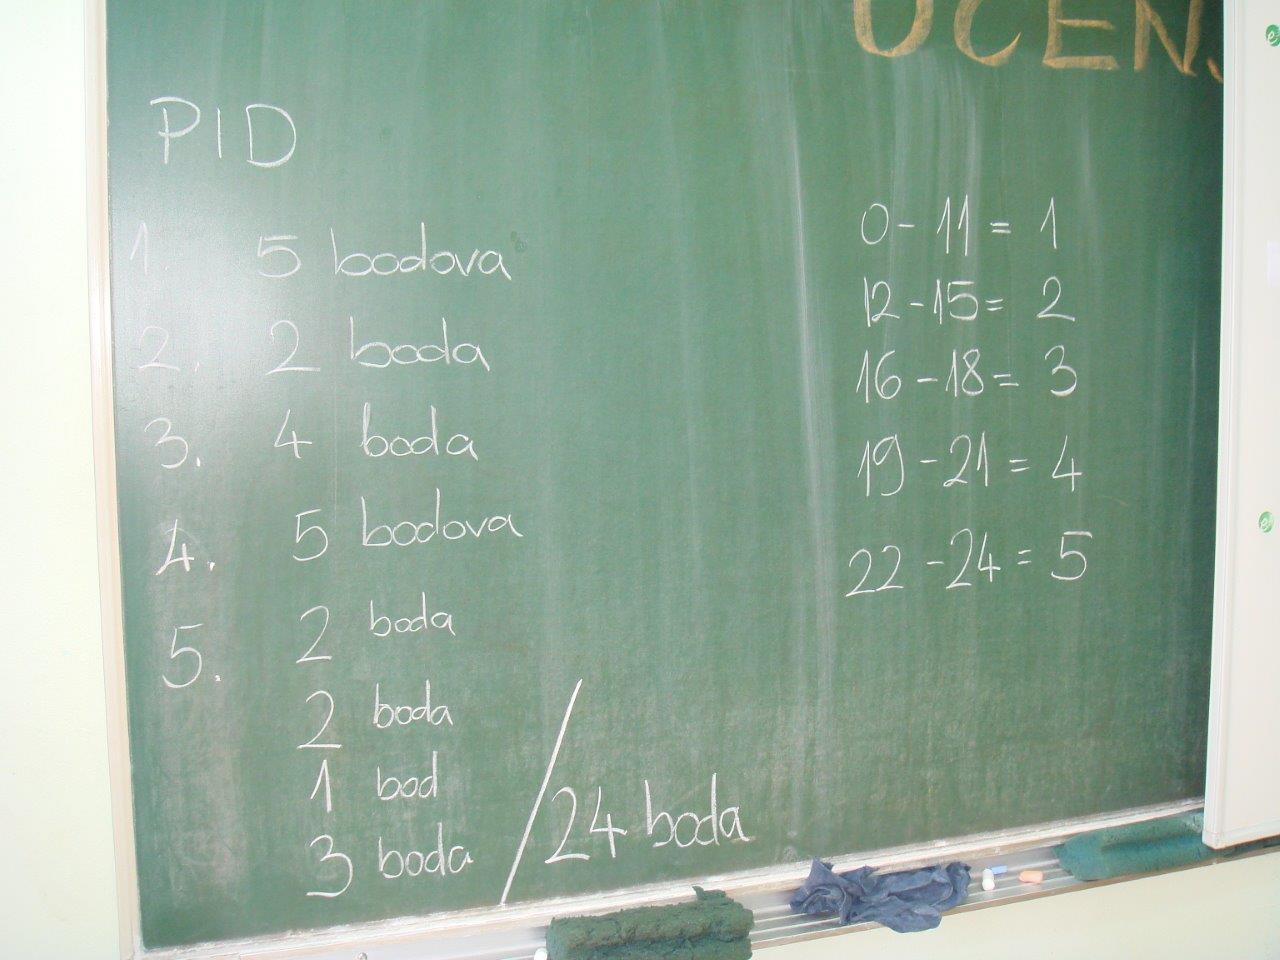 UČEN.
PID
1. 5 bodova
2. 2 boda
3. 4 boda
4. 5 bodova
5. 2 boda
2 boda
1 bod
3 boda
/24 boda
0-11 = 1
12-15= 2
16-18= 3
19-21 = 4
22-24 = 5